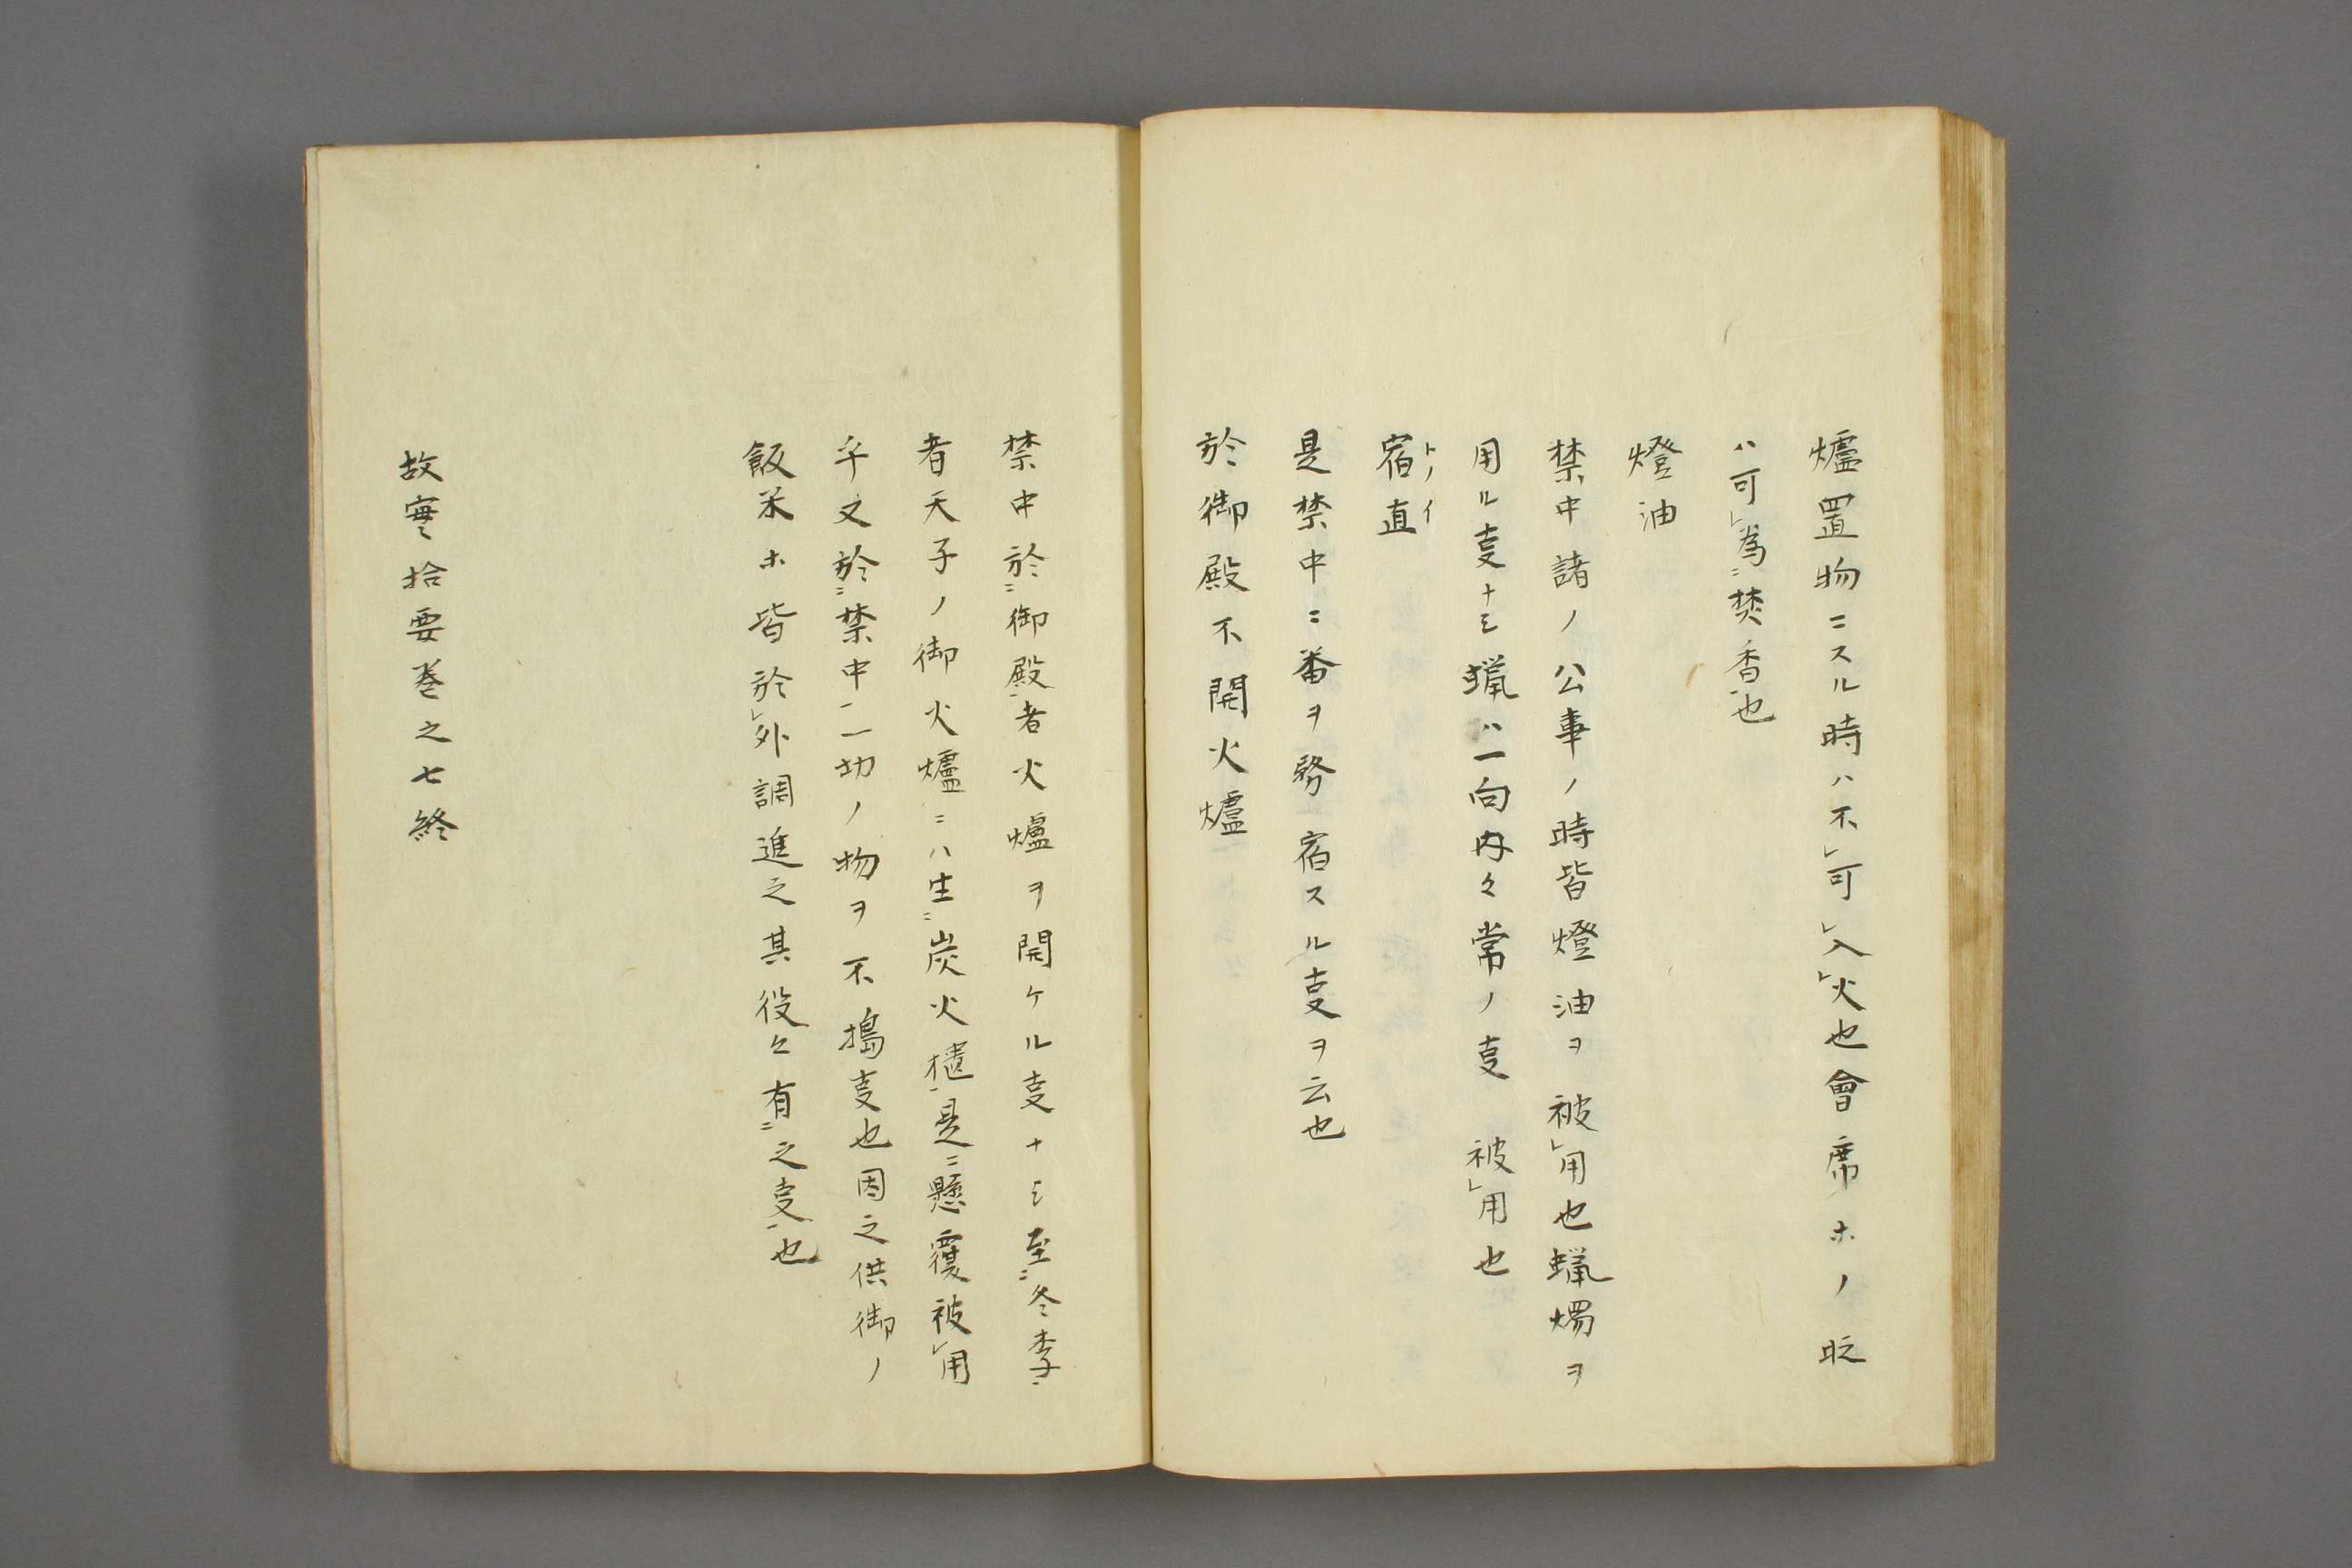 爐置物ニスル時ハ不㆑可㆑入㆑火也會席ホノ時
ハ可㆑為㆓焚香㆒也
燈油
禁中諸ノ公事ノ時皆燈油ヲ被㆑用也蝋燭ヲ
用ル叓ナシ蝋ハ一向内々常ノ叓被㆑用也
宿直トノイ
是禁中ニ番ヲ務宿スル叓ヲ云也
於御殿不開火爐
禁中於㆓御殿㆒者火爐ヲ開ケル叓ナシ至㆓冬季㆒
者天子ノ御火爐ニハ生㆓炭火櫃㆒是ニ懸覆被㆑用
乎又於㆓禁中㆒一切ノ物ヲ不搗叓也因之供御ノ
飯米ホ皆於㆑外調進之其役々有㆓之叓㆒也
故寔拾要巻之七終